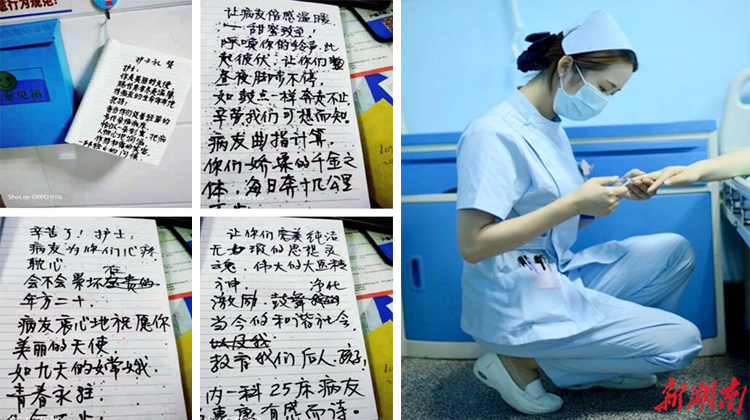 行为规范!
意见箱
护士礼赞
护士:
你是美丽的天使
Shot on OPPO R11s
让病友倍感温暖
甜蜜
呼唤你的铃声,此
起彼伏,让你们整
昼夜脚步不停,
如鼓点一样奔走不止
辛劳我们可想而知
病友曲指计算,
你们娇柔的千金之
体,每日奔十几公里
辛苦了!护士,
病友为你们心疼,
耽心
会不会累坏宝贵的
年方二十.
病友衷心地祝愿你
美丽的天使
如九天的嫦娥,
青春永驻.
Shot on OPPO R11s
让你们完美纯洁
无瑕的思想灵
魂,伟大的大无畏精
神 净化
激励,鼓舞
当今的和谐社会
教育我们后人、孩子,
内一科25床病友
有感而诗.
新湖南